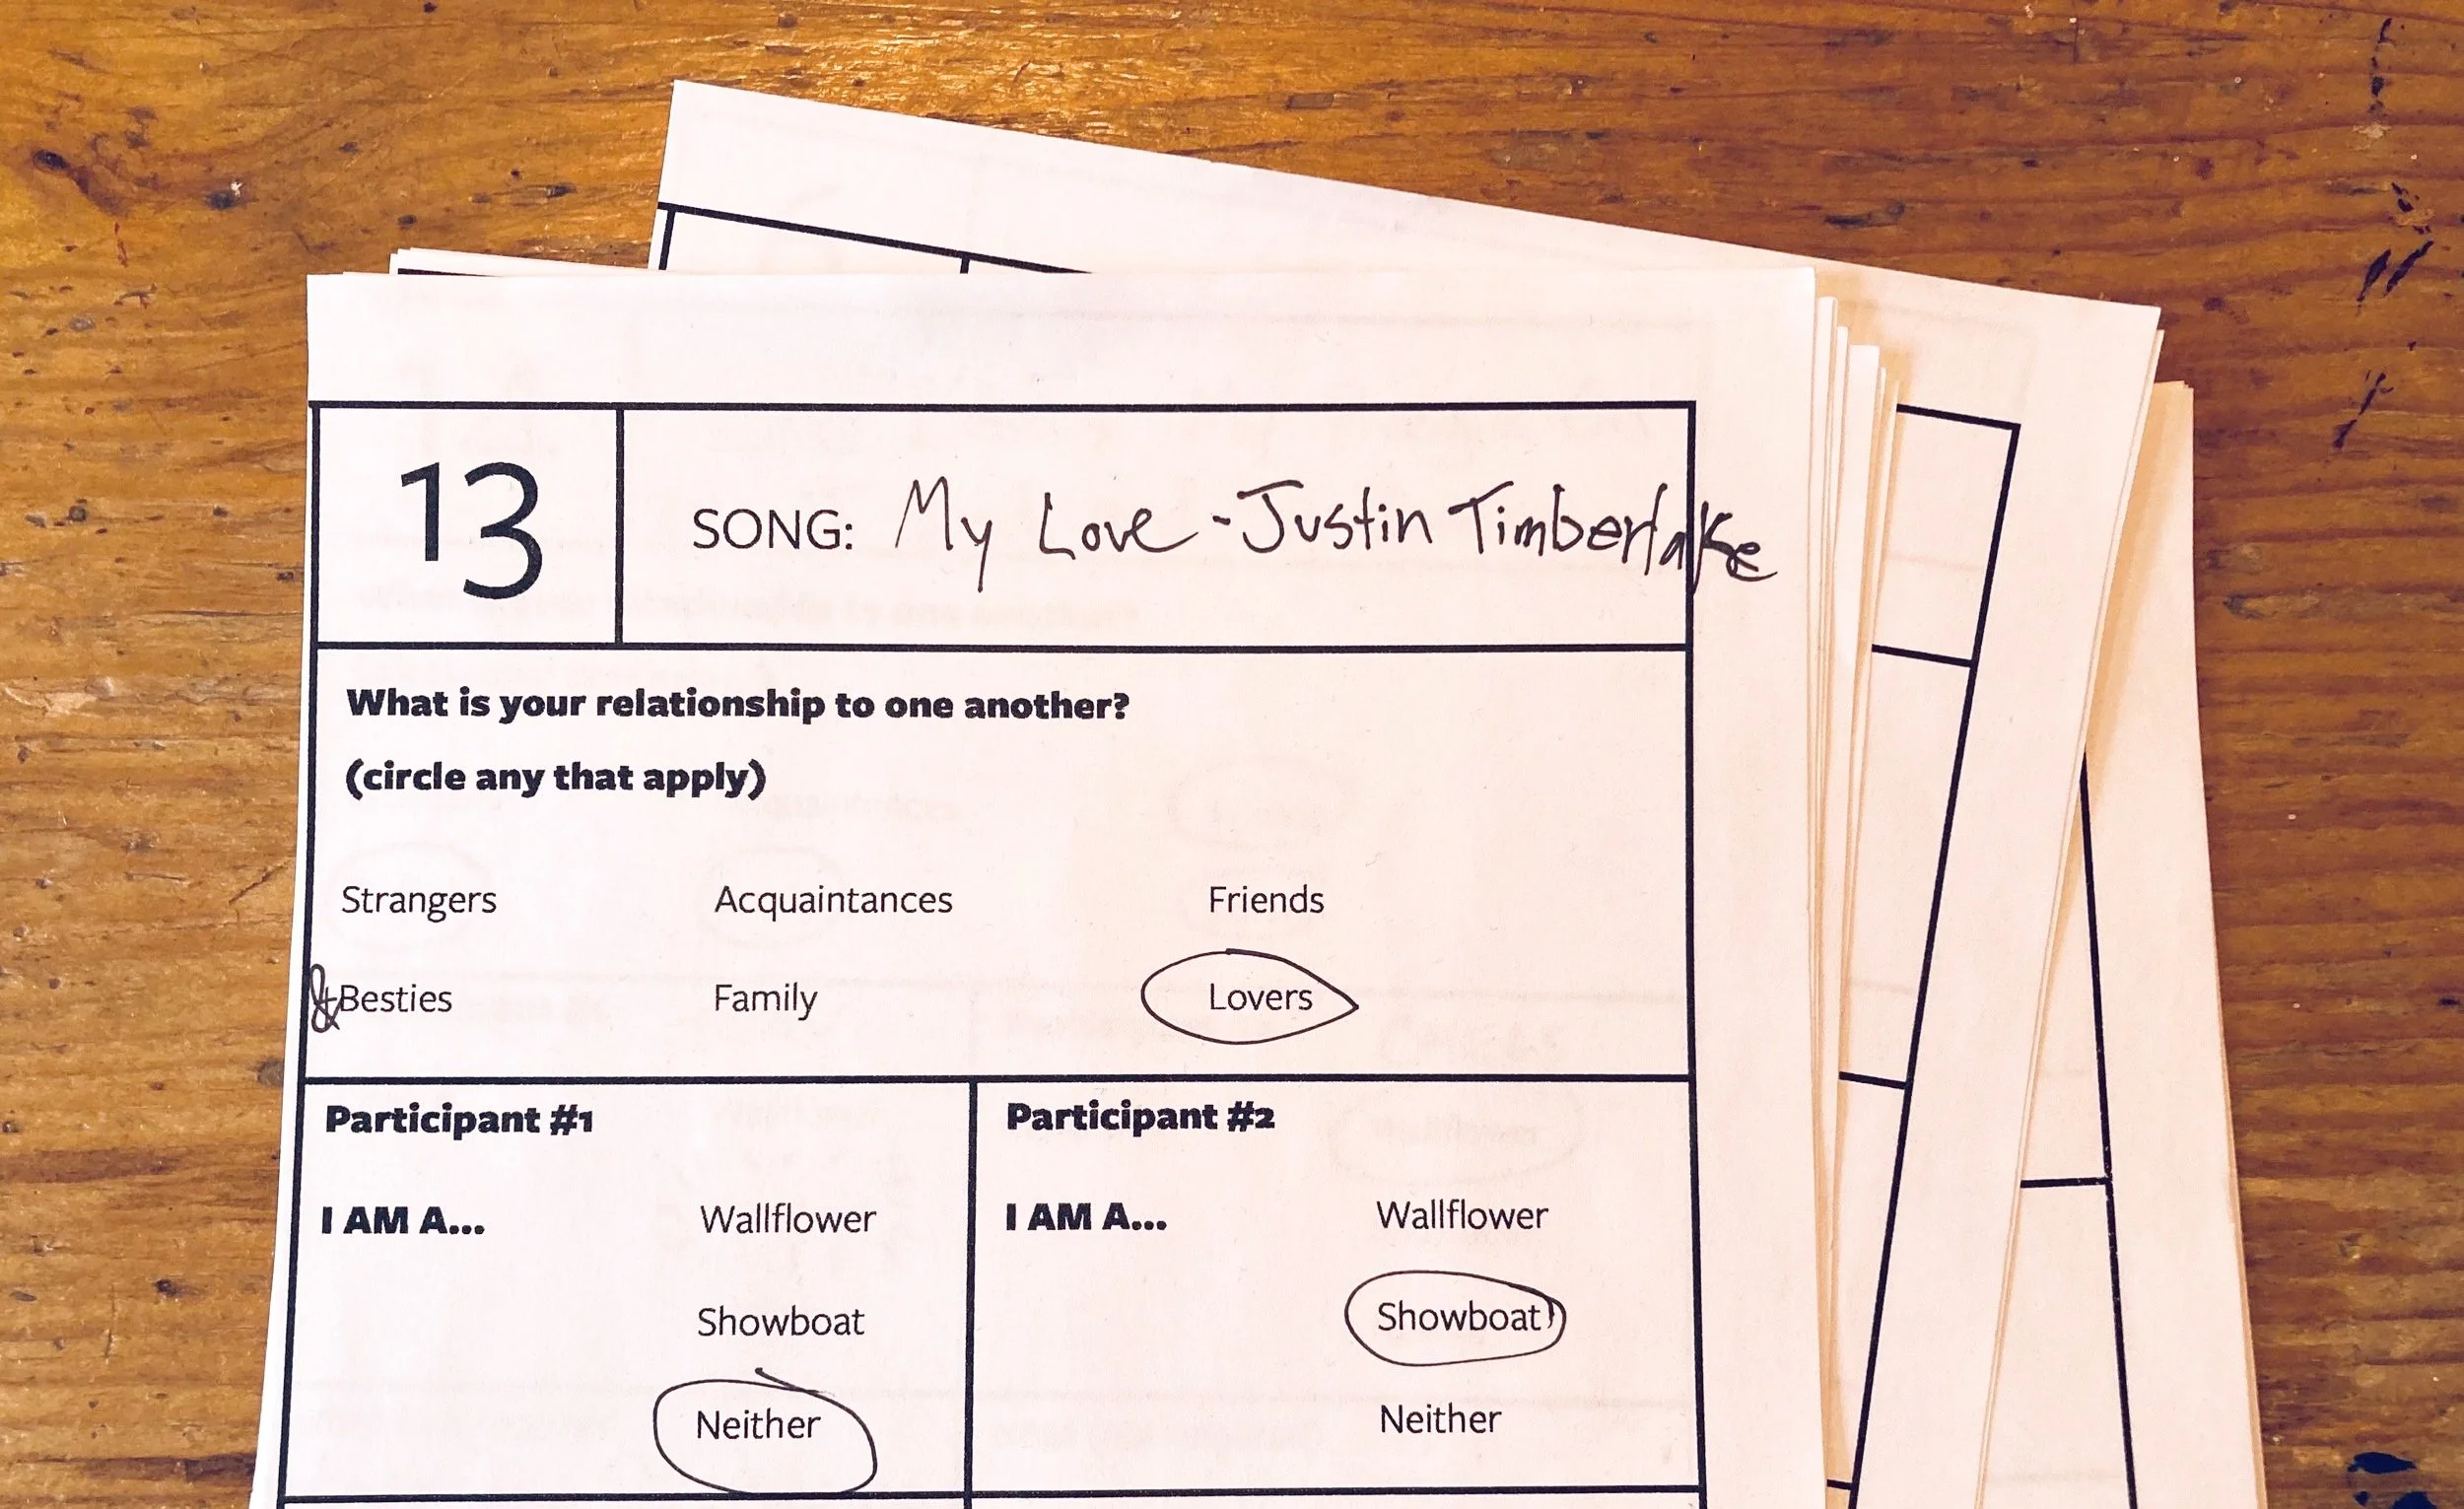 13
SONG: My Love - Justin Timberlake
What is your relationship to one another?
(circle any that apply)
Strangers Acquaintances Friends
& Besties Family Lovers
Participant #1 Participant #2
I AM A... Wallflower I AM A... Wallflower
Showboat Showboat
Neither Neither